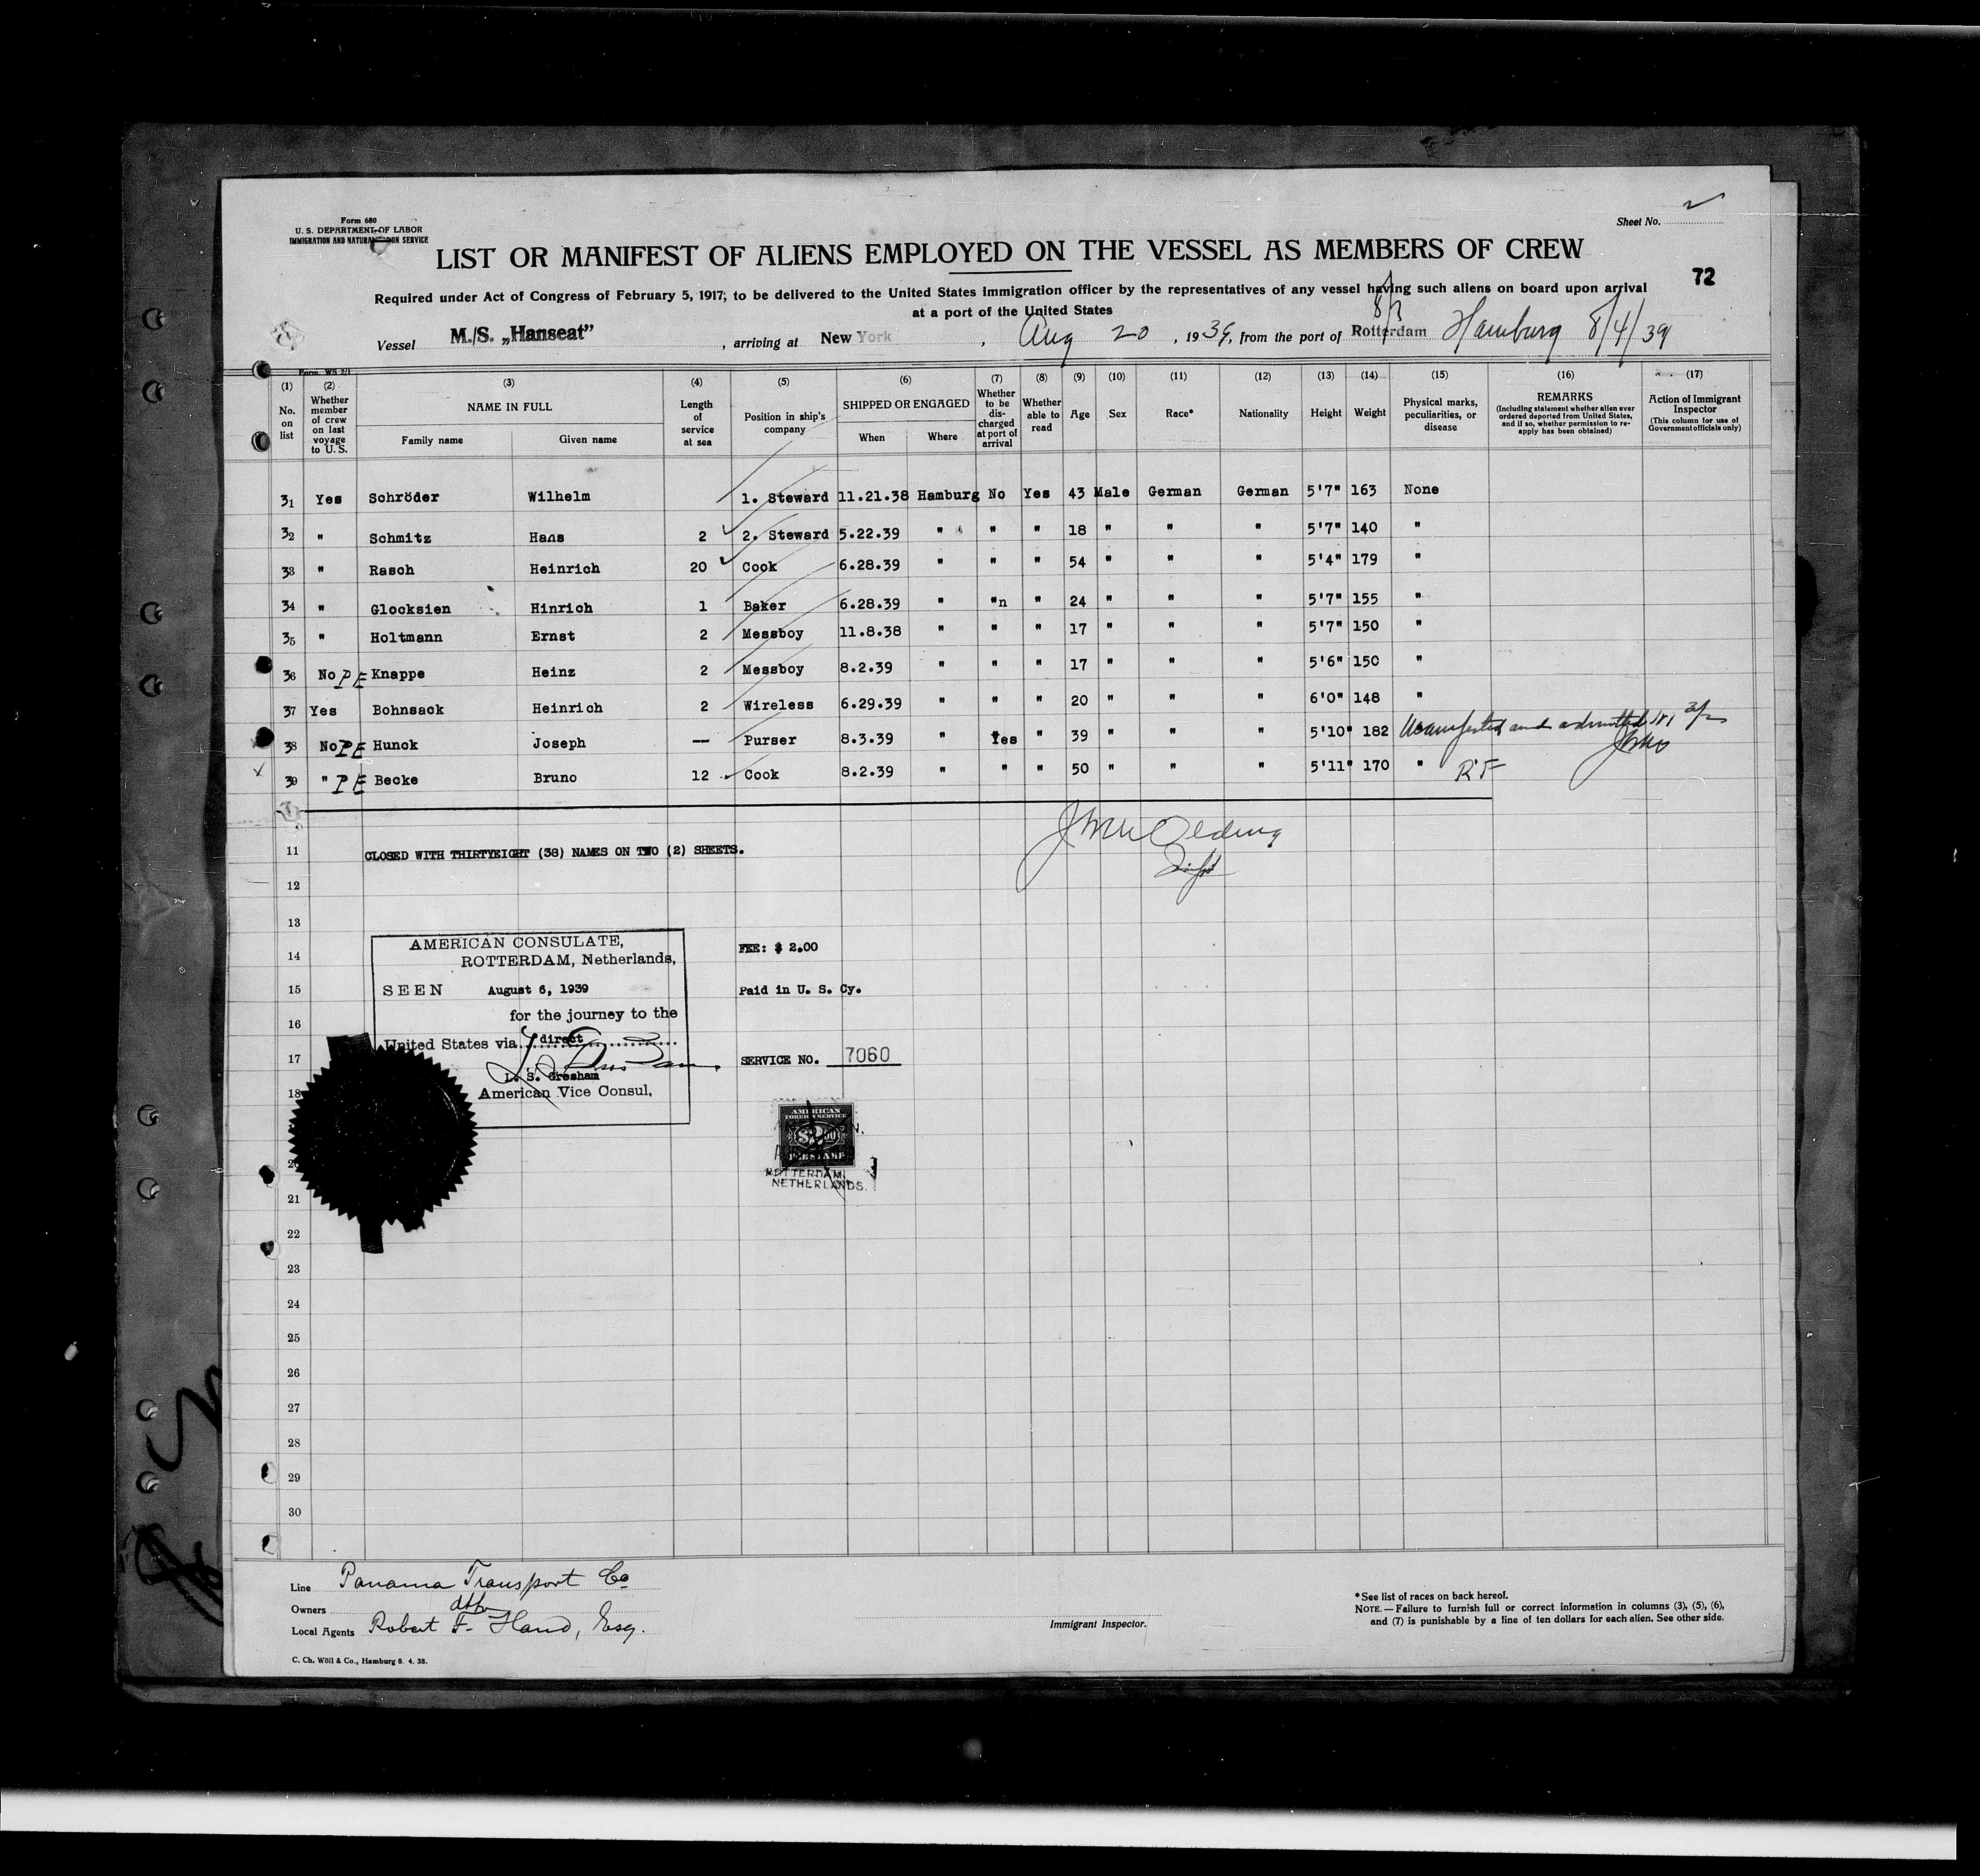 Form 680
U. S. DEPARTMENT OF LABOR
IMMIGRATION AND NATURALIZATION SERVICE
Sheet No. 2
LIST OR MANIFEST OF ALIENS EMPLOYED ON THE VESSEL AS MEMBERS OF CREW
72
Required under Act of Congress of February 5, 1917; to be delivered to the United States immigration officer by the representatives of any vessel having such aliens on board upon arrival
at a port of the United States
Vessel M./S. „Hanseat” , arriving at New York , Aug 20 , 1939, from the port of Rotterdam Hamburg 8/4/39
Form. WS 2/1
(1) (2) (3) (4) (5) (6) (7) (8) (9) (10) (11) (12) (13) (14) (15) (16) (17)
No. on list
Whether member of crew on last voyage to U. S.
NAME IN FULL
Family name Given name
Length of service at sea
Position in ship's company
SHIPPED OR ENGAGED
When Where
Whether to be discharged at port of arrival
Whether able to read
Age Sex Race* Nationality Height Weight
Physical marks, peculiarities, or disease
REMARKS
(Including statement whether alien ever ordered deported from United States, and if so, whether permission to re-apply has been obtained)
Action of Immigrant Inspector
(This column for use of Government officials only)
31 Yes Schröder Wilhelm 1. Steward 11.21.38 Hamburg No Yes 43 Male German German 5'7" 163 None
32 " Schmitz Hans 2 2. Steward 5.22.39 " " " 18 " " " 5'7" 140 "
33 " Rasch Heinrich 20 Cook 6.28.39 " " " 54 " " " 5'4" 179 "
34 " Glocksien Hinrich 1 Baker 6.28.39 " "n " 24 " " " 5'7" 155 "
35 " Holtmann Ernst 2 Messboy 11.8.38 " " " 17 " " " 5'7" 150 "
36 No PE Knappe Heinz 2 Messboy 8.2.39 " " " 17 " " " 5'6" 150 "
37 Yes Bohnsack Heinrich 2 Wireless 6.29.39 " " " 20 " " " 6'0" 148 "
38 No PE Hunck Joseph — Purser 8.3.39 " Yes " 39 " " " 5'10" 182 Manifested and admitted
39 " PE Becke Bruno 12 Cook 8.2.39 " " " 50 " " " 5'11" 170 " RF
11
CLOSED WITH THIRTYEIGHT (38) NAMES ON TWO (2) SHEETS.
12
13
14
15
16
17
18
20
21
22
23
24
25
26
27
28
29
30
AMERICAN CONSULATE,
ROTTERDAM, Netherlands,
SEEN August 6, 1939
for the journey to the
United States via direct
L. S. Gresham
American Vice Consul,
FEE: $ 2.00
Paid in U. S. Cy.
SERVICE NO. 7060
AMERICAN
FOREIGN SERVICE
$2.00
FEE STAMP
ROTTERDAM
NETHERLANDS.
Line Panama Transport Co
Owners ditto
Local Agents Robert F. Hand, Esq.
C. Ch. Wöll & Co., Hamburg 8. 4. 38.
Immigrant Inspector.
*See list of races on back hereof.
NOTE.—Failure to furnish full or correct information in columns (3), (5), (6),
and (7) is punishable by a fine of ten dollars for each alien. See other side.